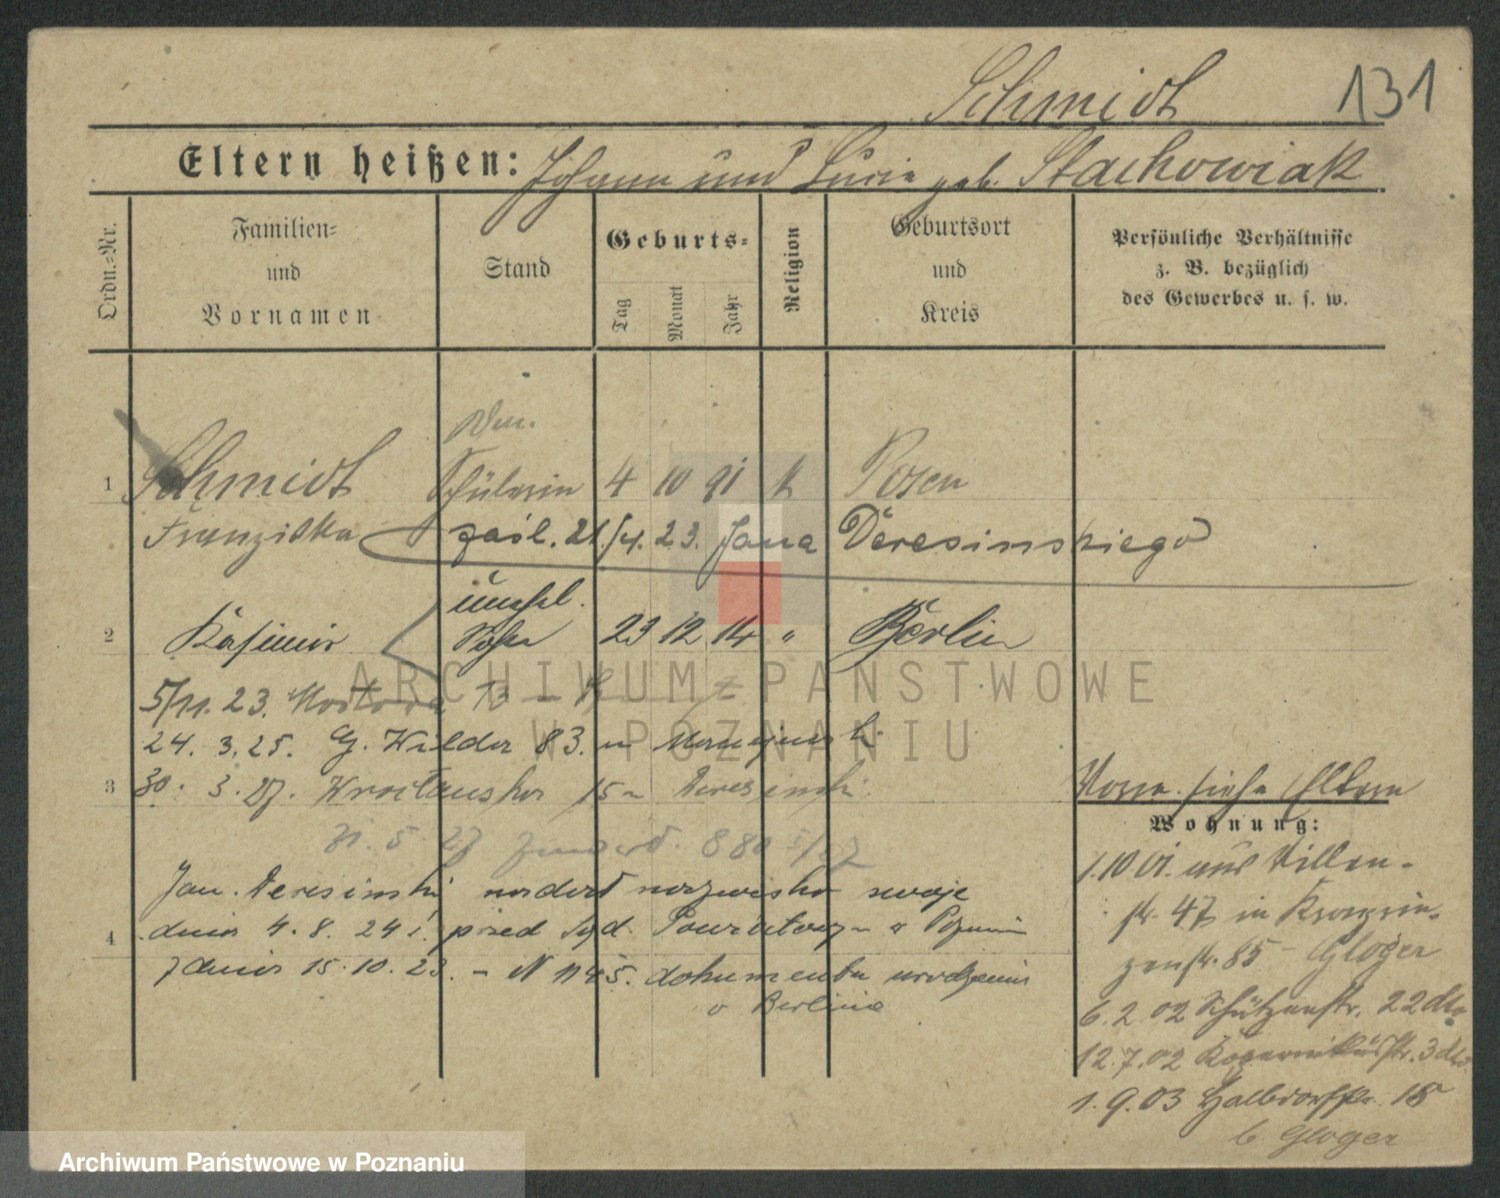 Schmidt 131
Eltern heißen: Johann und Lucia geb. Stachowiak
Ordn.=Nr.
Familien=
und
Vornamen
Stand
Geburts=
Tag
Monat
Jahr
Religion
Geburtsort
und
Kreis
Persönliche Verhältnisse
z. B. bezüglich
des Gewerbes u. s. w.
1 Schmidt Schülerin 4 10 91 k Posen
Franziska zaśl. 21./4. 23. Jana Deresinskiego
unehel.
2 Kasimir Sohn 23 12 14 " Berlin
5/11. 23.
24. 3. 25. G. Wilda 83.
3 30. 3. 27. Wrocławska 15
31. 5. 27 880 5/27
Jan Deresinski swoje
4 dnia 4. 8. 24 przed Sąd. Powiatowy w Poznaniu
z dnia 15. 10. 23. – N 1145. dokumentu urodzenia
w Berlinie
Vorm. siehe Eltern
Wohnung:
1. 10 01. aus Villen-
str. 47 in Kronprin-
zenstr. 85 – Gloger
6. 2. 02 Schützenstr. 22 dto
12. 7. 02 Kopernikusstr. 3 dto
1. 9. 03 Halbdorfstr. 15
b. Gloger
ARCHIWUM PAŃSTWOWE
W POZNANIU
Archiwum Państwowe w Poznaniu